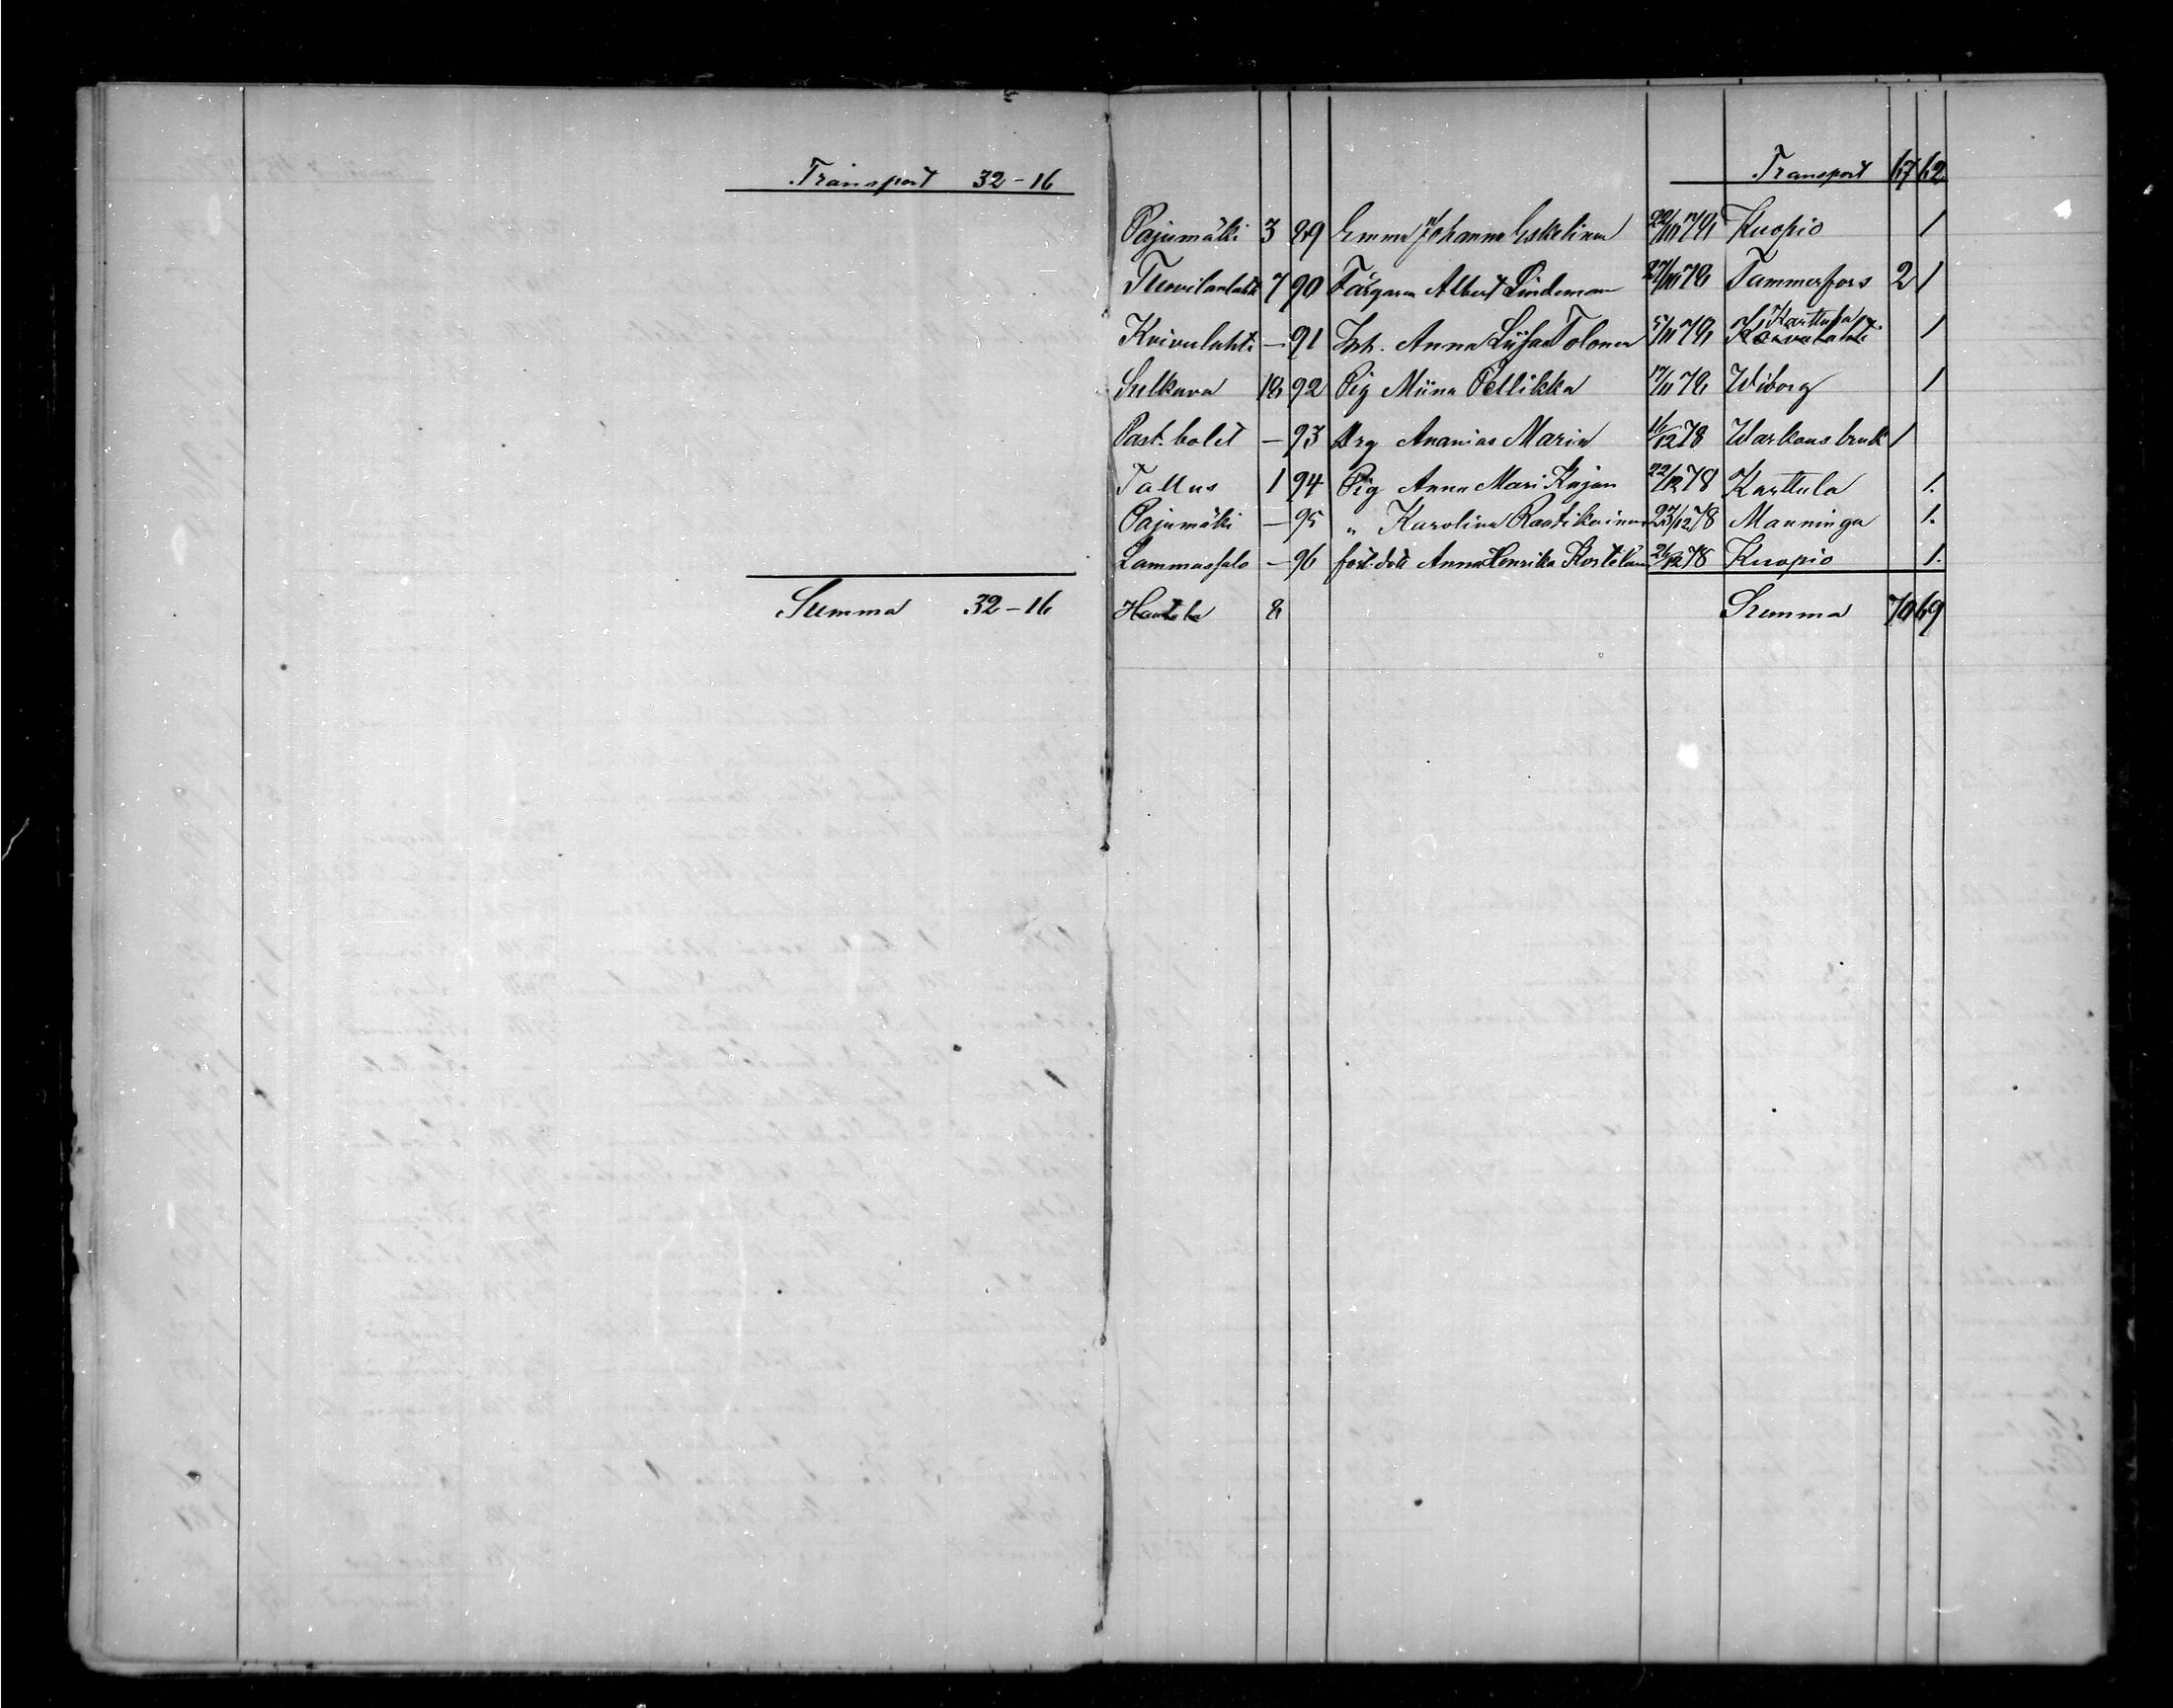 Transport 32-16
Summa 32-16
Transport 67 62
Pajumäki 3 89 Emma Johanna Eskelinen 22/10 78 Kuopio 1
Tuovilanlahti 7 90 Färgaren Albert Lindeman 27/10 78 Tammerfors 2 1
Karttula
Koivulahti - 91 Inh. Anna Liisa Tolonen 5/11 78 1
Sulkava 18 92 Pig Miina Pellikka 17/11 78 Wiborg 1
Past. bolet - 93 Drg Ananias Marin 16/12 78 Warkaus bruk 1
Tallus 1 94 Pig Anna Mari Kujan 22/12 78 Karttula 1.
Pajumäki - 95 „ Karolina Raatikainen 23/12 78 Maaninga 1.
Lammassalo - 96 Anna Henrika 26/12 78 Kuopio 1.
Hautola 8 Summa 70 69